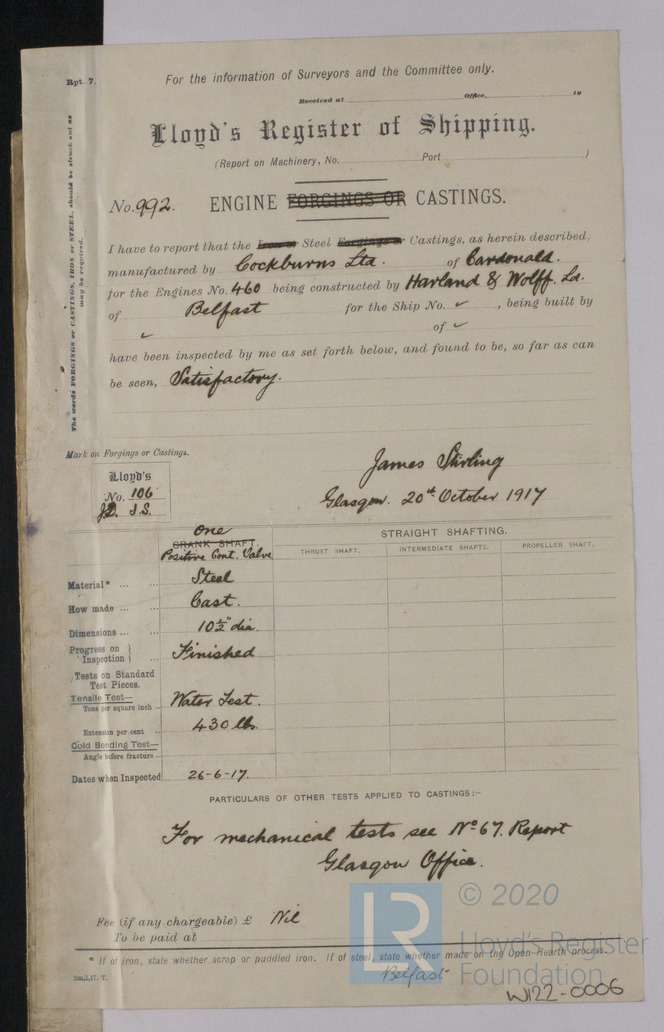 Rpt. 7.
For the information of Surveyors and the Committee only.
Received at Office, 19
Lloyd's Register of Shipping.
(Report on Machinery, No. Port )
No. 992. ENGINE FORGINGS OR CASTINGS.
The words FORGINGS or CASTINGS, IRON or STEEL, should be struck out as may be required.
I have to report that the Iron or Steel Forgings or Castings, as herein described,
manufactured by Cockburns Ltd. of Cardonald.
for the Engines No. 460 being constructed by Harland & Wolff. Ld.
of Belfast for the Ship No. ✓ , being built by
✓ of ✓
have been inspected by me as set forth below, and found to be, so far as can
be seen, Satisfactory.
Mark on Forgings or Castings.
Lloyd's
No. 106
J.D. J.S.
James Stirling
Glasgow. 20th October 1917
One
CRANK SHAFT.
Positive Cont. Valve
STRAIGHT SHAFTING.
THRUST SHAFT. INTERMEDIATE SHAFTS. PROPELLER SHAFT.
Material* ... ... Steel
How made ... ... Cast.
Dimensions ... ... 10½" dia.
Progress on Inspection } ... Finished
Tests on Standard
Test Pieces.
Tensile Test— Water Test.
Tons per square inch ..
Extension per cent .. 430 lbs.
Cold Bending Test—
Angle before fracture ..
Dates when Inspected 26-6-17.
PARTICULARS OF OTHER TESTS APPLIED TO CASTINGS:-
For mechanical tests see No 67. Report
Glasgow Office.
Fee (if any chargeable) £ Nil
To be paid at
* If of iron, state whether scrap or puddled iron. If of steel, state whether made on the Open Hearth process.
2m,1,17. T.
Belfast
W122-0006
LR
© 2020
Lloyd's Register
Foundation